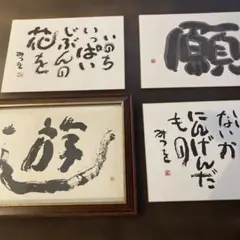 いのち
いっぱい
じぶんの
花を
みつを
願
遊
いいじゃ
ないか
にんげんだ
もの
みつを